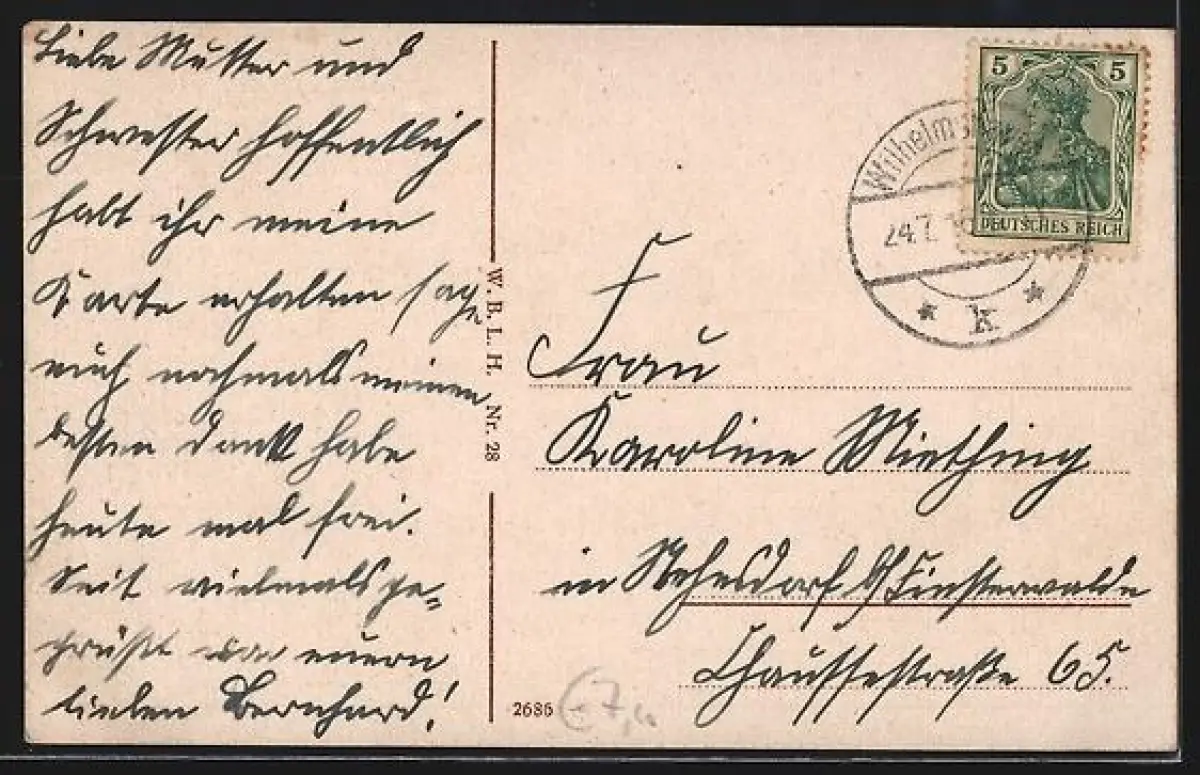 Liebe Mutter und
Schwester hoffentlich
habt ihr meine
Karte erhalten sage
euch nochmals meinen
besten Dank habe
heute mal frei.
Seit vielmals ge-
grüßt von euern
lieben Bernhard!
W. B. L. H. Nr. 28
5 5
DEUTSCHES REICH
Wilhelms
24.7.
* k *
F
Frau
Karoline Miething
in Nehesdorf b/Finsterwalde
Chaussestraße 65.
2686